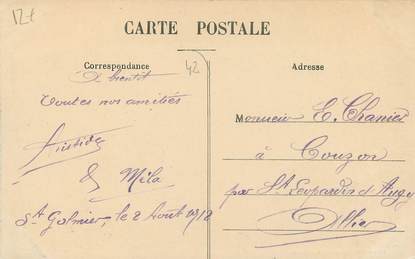 12t
CARTE POSTALE
Correspondance
42
Adresse
A bientôt
Toutes nos amitiés
Aristide
& Méla
St Galmier, le 2 Août 1912
Monsieur E. Chanier
à Couzon
par St Léopardin d'Augy
Allier